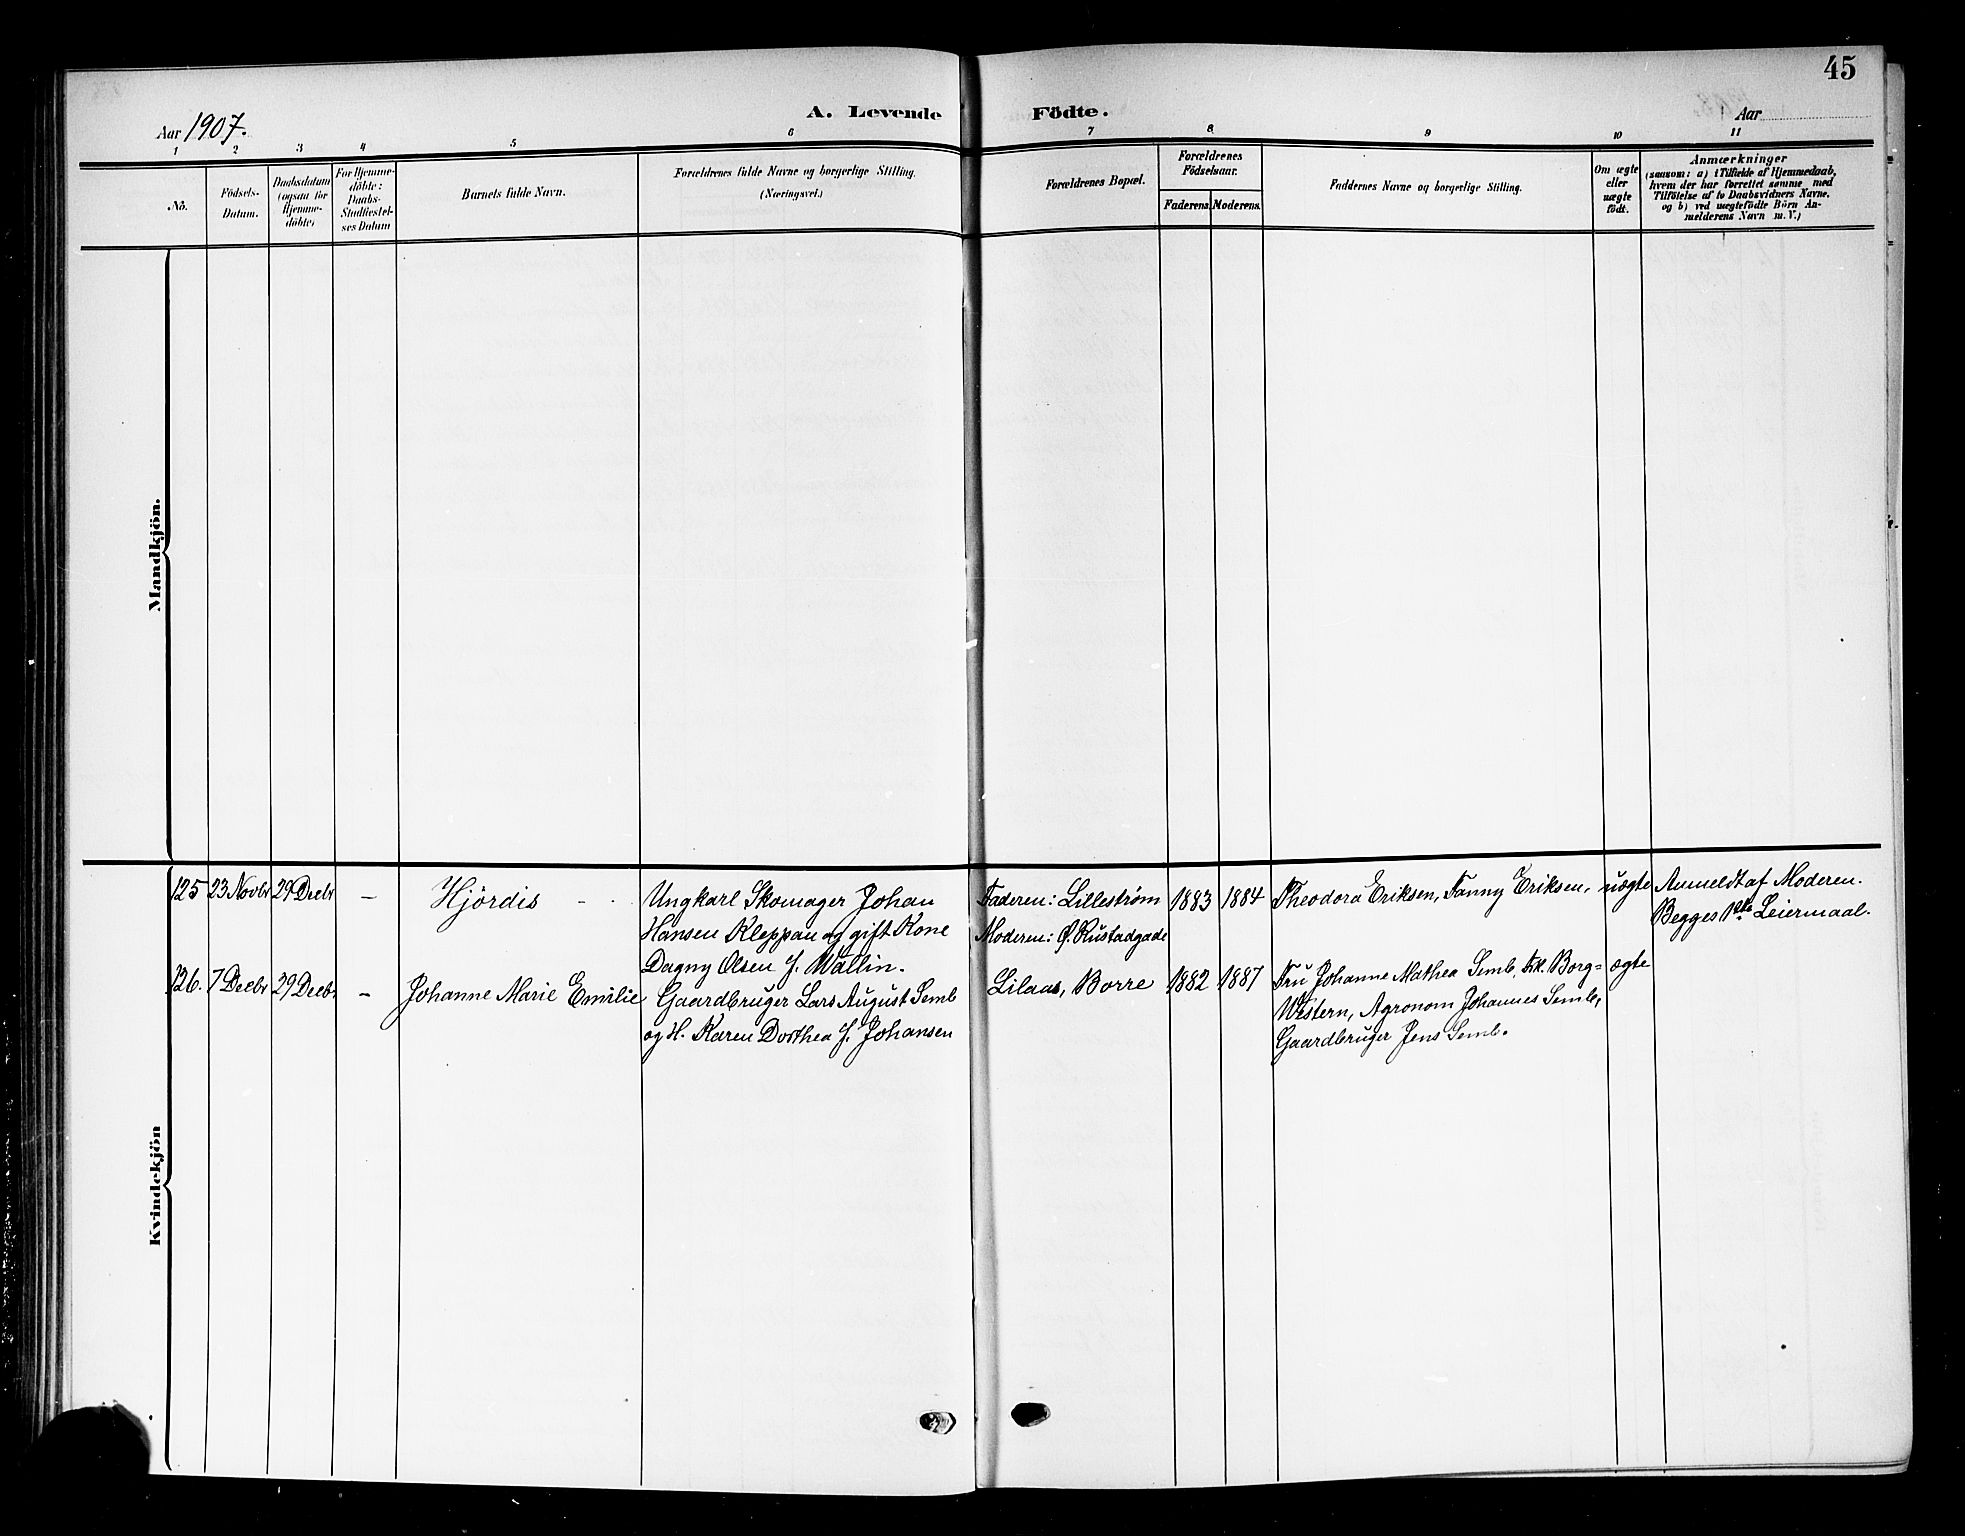 45
A. Levende Födte.
Aar 1907.
Aar
1 2 3 4 5 6 7 8 9 10 11
No.
Födsels-
Datum.
Daabsdatum
(ogsaa for
Hjemme-
döbte)
For Hjemme-
döbte:
Daabs-
Stadfæstel-
ses Datum
Barnets fulde Navn.
Forældrenes fulde Navne og borgerlige Stilling.
(Næringsvei.)
Forældrenes Bopæl.
Forældrenes
Födselsaar.
Faderens Moderens.
Faddernes Navne og borgerlige Stilling.
Om ægte
eller
uægte
födt.
Anmærkninger
(saasom: a) i Tilfælde af Hjemmedaab,
hvem der har forrettet samme, med
Tilföielse af to Daabsvidners Navne,
og b) ved uægtefödte Börn An-
melderens Navn m. V.)
Mandkjön.
Kvindekjön
125 23 Novbr 29 Decbr – Hjördis
Ungkarl Skomager Johan
Hansen Kleppau og gift Kone
Dagny Olsen f. Wallin.
Faderen: Lillestrøm
Moderen: Ø. Rustadgade
1883 1884
Theodora Eriksen, Fanny Eriksen,
uægte
Anmeldt af Moderen.
Begges 1ste Leiermaal.
126. 7 Decbr 29 Decbr. – Johanne Marie Emilie
Gaardbruger Lars August Semb
og H. Karen Dorthea f. Johansen
Lilaas, Borre
1882 1887
Fru Johanne Mathea Semb, Frk. Borg=
Western, Agronom Johannes Semb,
Gaardbruger Jens Semb.
ægte